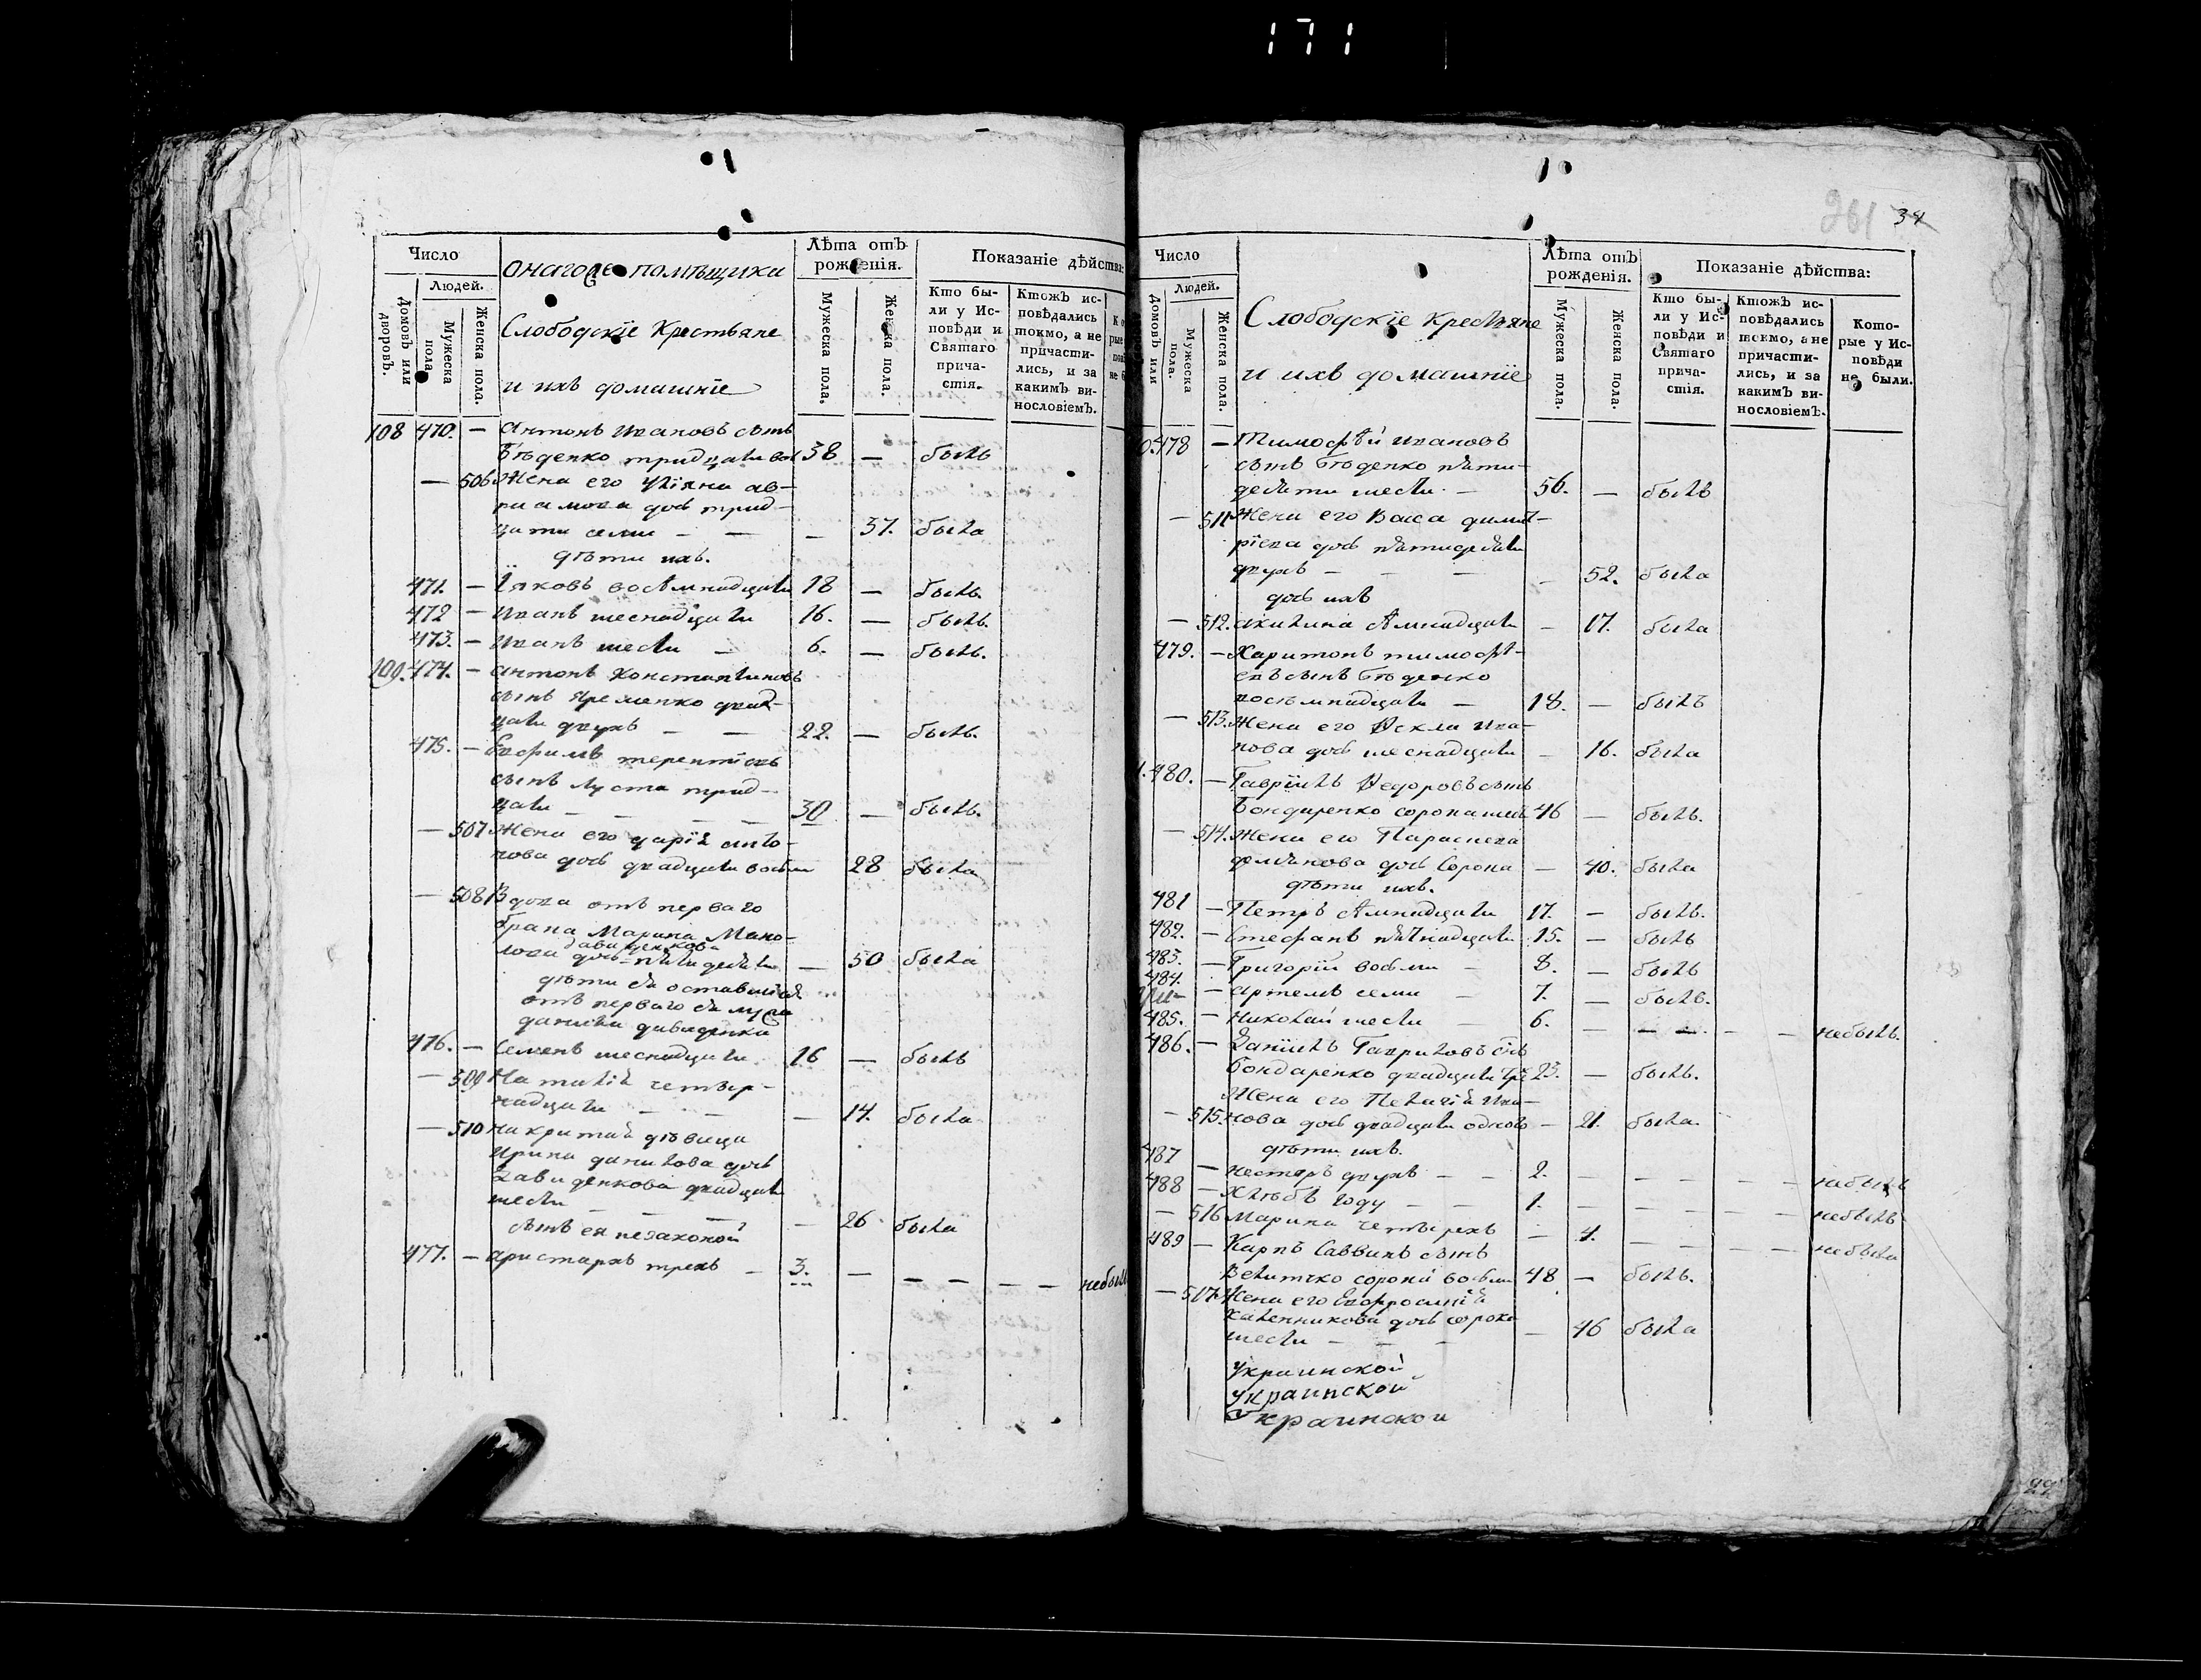 171
Число
Людей.
Домовъ или дворовъ.
Мужеска пола.
Женска пола.
онагоже помѣщики
Слободскіе Крестьяне
и ихъ домашніе
Лѣта отъ рожденія.
Мужеска пола.
Женска пола.
Показаніе дѣйства:
Кто были у Исповѣди и Святаго причастія.
Ктожъ исповѣдались токмо, а не причастились, и за какимъ винословіемъ.
108 470. — Антонъ Ивановъ сынъ
Бѣденко тридцати вос 38 — былъ
— 506 Жена его Уліяна ав-
дочь трид-
цати семи — — — 37. была
дѣти ихъ.
471. — Іяковъ восемнадцати 18 — былъ
472 — Иванъ шеснадцати 16. — былъ.
473. — Иванъ шести — 6. — былъ.
109. 474. — Антонъ Константиновъ
сынъ Яременко двад-
цати двухъ — — 22. — былъ.
475. — Евфимъ терентіевъ
сынъ Луста трид-
цати — — — 30 — былъ.
— 507 Жена его дарія
дочь двадцати восьми 28 была
— 508 Вдова отъ перваго
брака Марина Мано-
давиденкова
лова дочь пятидесяти — 50 была
дѣти ея оставшіяся
отъ перваго ея мужа
данила давиденка
476. — Семенъ шеснадцати 16 — былъ
— 509 Наталія четыр-
надцати — — — 14. была
— 510 накритая дѣвица
Ирина данилова дочь
Давиденкова двадцати
шести — — — 26 была
сынъ ея незаконой
477. — аристархъ трехъ — 3. — — — — — небылъ
261 34
Число
Людей.
Домовъ или
Мужеска пола.
Женска пола.
Слободскіе Крестьяне
и ихъ домашніе
Лѣта отъ рожденія.
Мужеска пола.
Женска пола.
Показаніе дѣйства:
Кто были у Исповѣди и Святаго причастія.
Ктожъ исповѣдались токмо, а не причастились, и за какимъ винословіемъ.
Которые у Исповѣди не были.
478 — Тимофѣй ивановъ
сынъ Бѣденко пяти-
десяти шести — 56. — былъ
— 511 Жена его Васса димит-
ріева дочь пятидесяти
двухъ — — — — 52. была
дочь ихъ
— 512. акилина семнадцати — 17. была
479. — Харитонъ тимофѣ-
евъ сынъ Бѣденко
восемнадцати — 18. — былъ
— 513. Жена его Ѳекла ива-
нова дочь шеснадцати — 16. была
480. — Гавріилъ Ѳедоровъ сынъ
Бондаренко сорока шест 46 — былъ.
— 514. Жена его Параскева
демянова дочь Сорока — 40. была
дѣти ихъ.
481 — Петръ семнадцати 17. — былъ.
482. — Стефанъ пятнадцати 15. — былъ
483. — Григорій восьми — 8. — былъ
484. — артемъ семи — 7. — былъ.
485. — Николай шести 6. — — — — — небылъ.
486. — Даніилъ Гавриловъ снъ
Бондаренко двадцати тре 23. — былъ.
Жена его Пелагія ива-
— 515. нова дочь двадцати одного — 21. была.
дѣти ихъ.
487 — несторъ двухъ — — 2. — — — — — небылъ
488 — Хлѣбъ году — — 1. — — — — — небылъ
— 516 Марина четырехъ — 4. — — — — небыла
489 — Карпъ Саввинъ сынъ
Величко сорока восьми 48 — былъ.
— 517. Жена его Евфросинія
Каленникова дочь сорока
шести — — — — 46 была
Украинской
украинской
Украинской